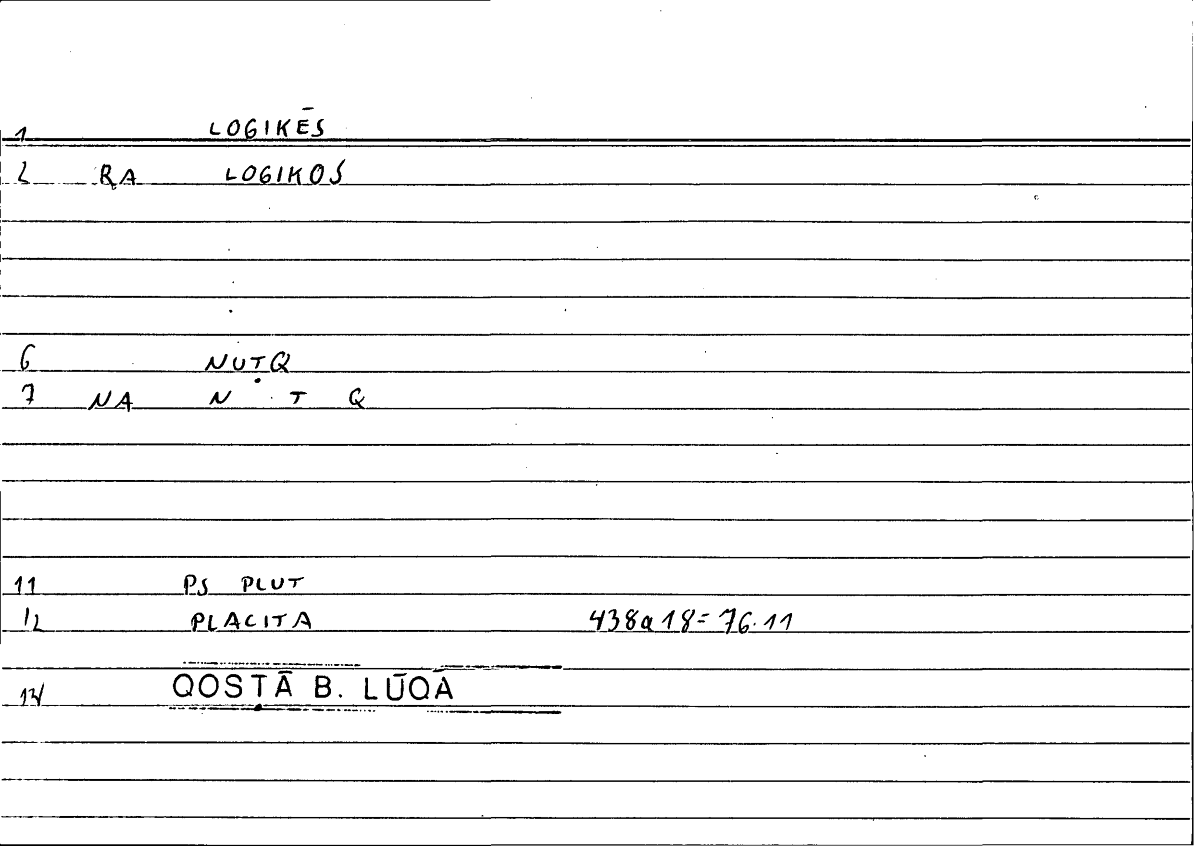 1 LOGIKĒS
2 RA LOGIKOS
6 NUṬQ
7 NA N Ṭ Q
11 PS PLUT
12 PLACITA 438a18=76.11
QOSṬĀ B. LŪQĀ